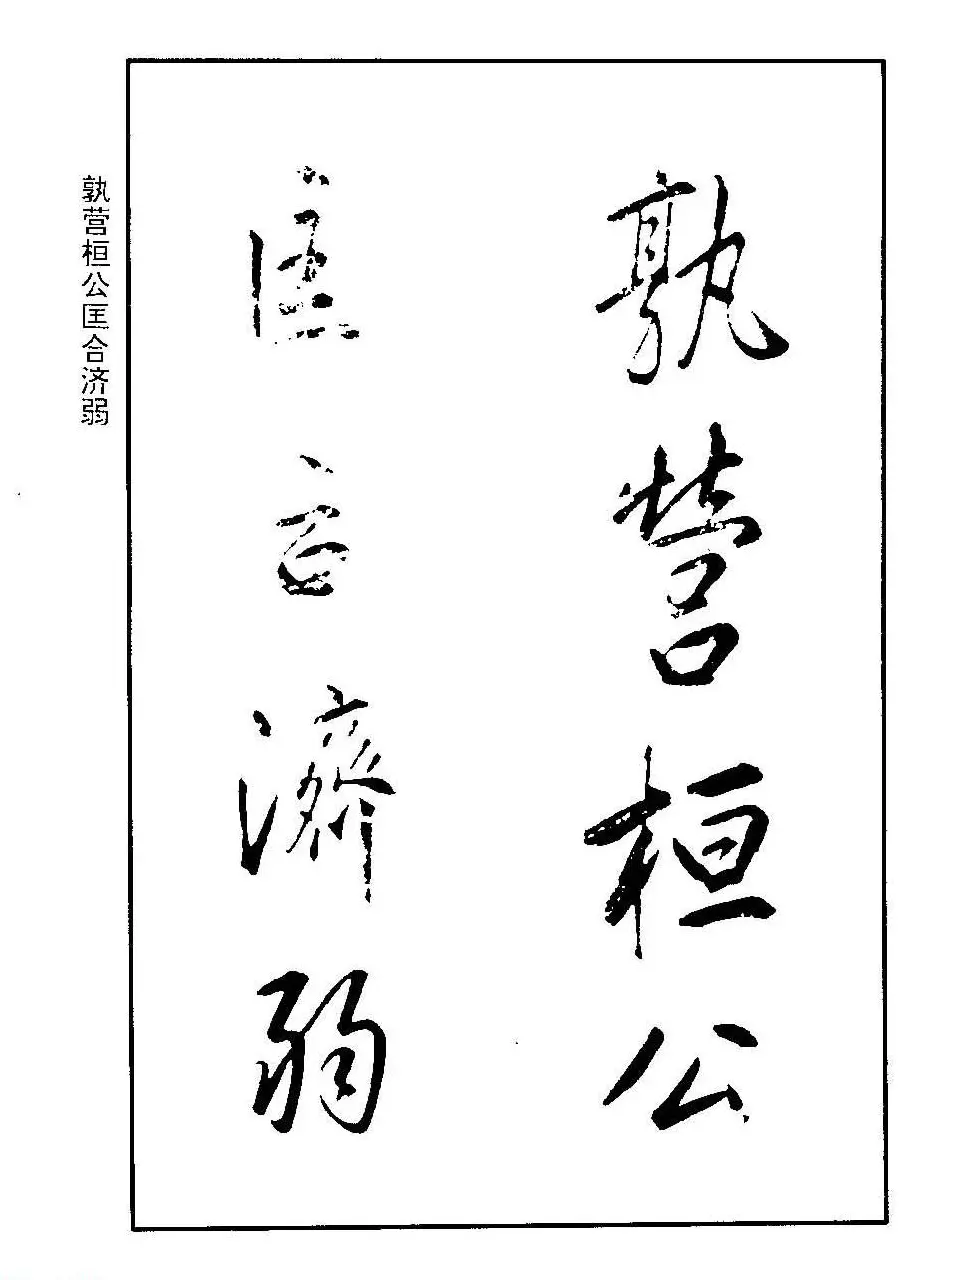 孰營桓公
匡合濟弱
孰营桓公匡合济弱